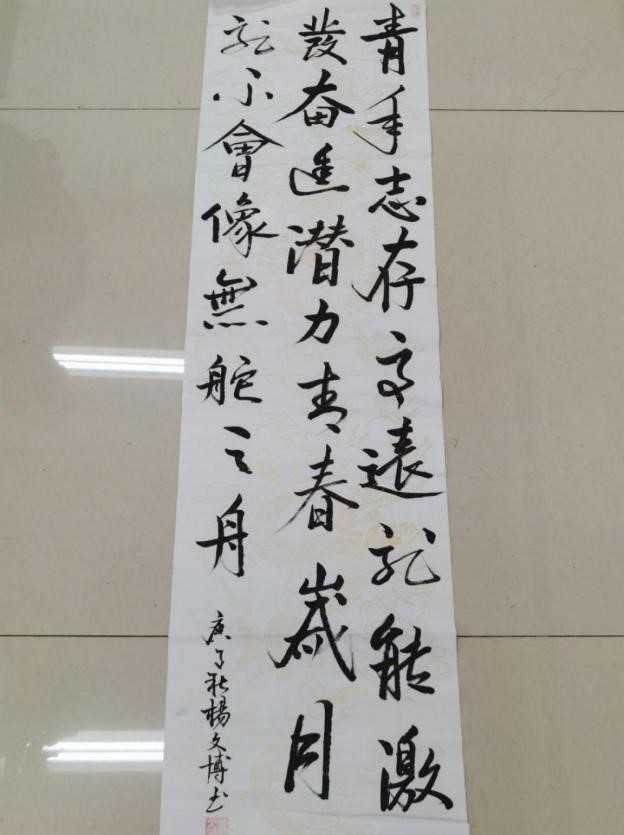 青年志存高遠就能激
發奮進潜力青春歲月
就不會像無舵之舟
庚子秋楊文博书